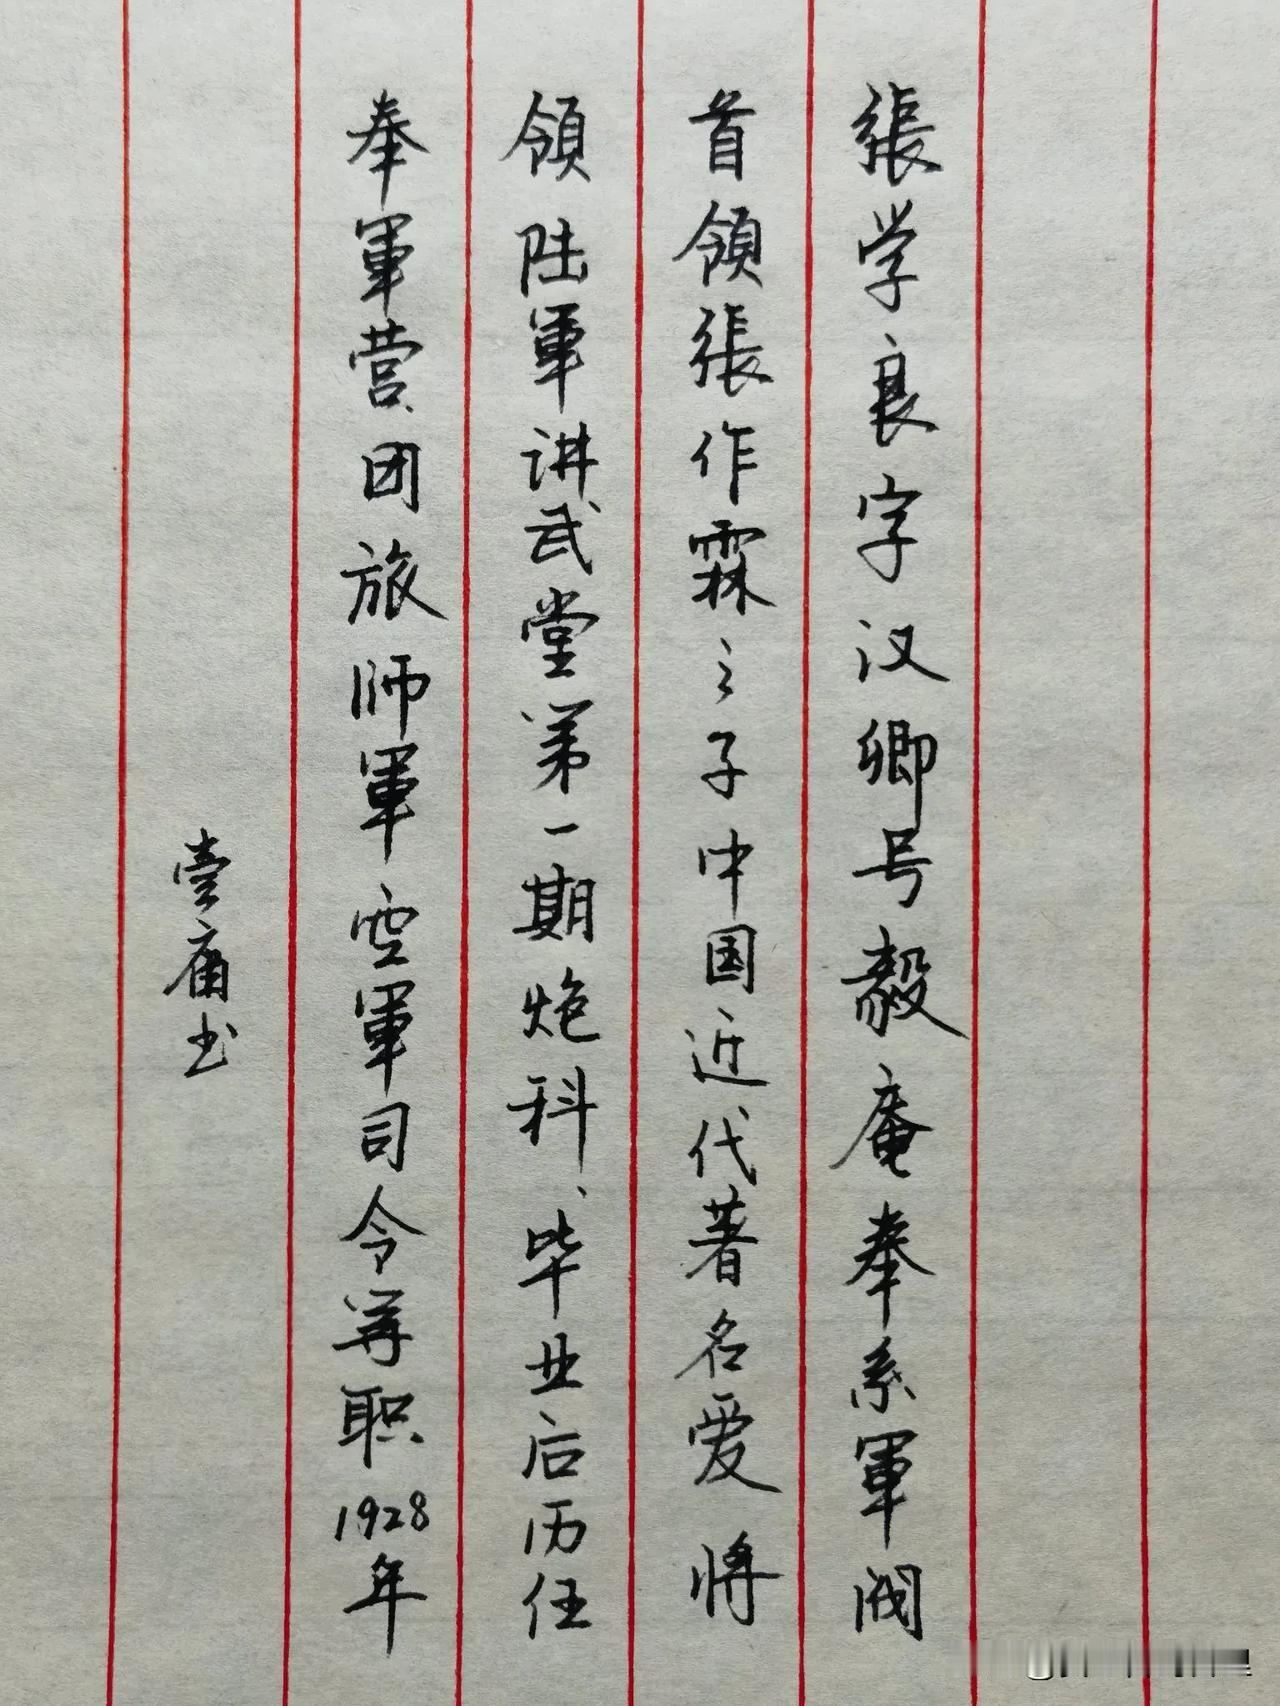 張学良字汉卿号毅庵奉系軍阀
首領張作霖之子中国近代著名爱将
領陆軍讲武堂第一期炮科、毕业后历任
奉軍营团旅师軍空軍司令等职1928年
壹庸书